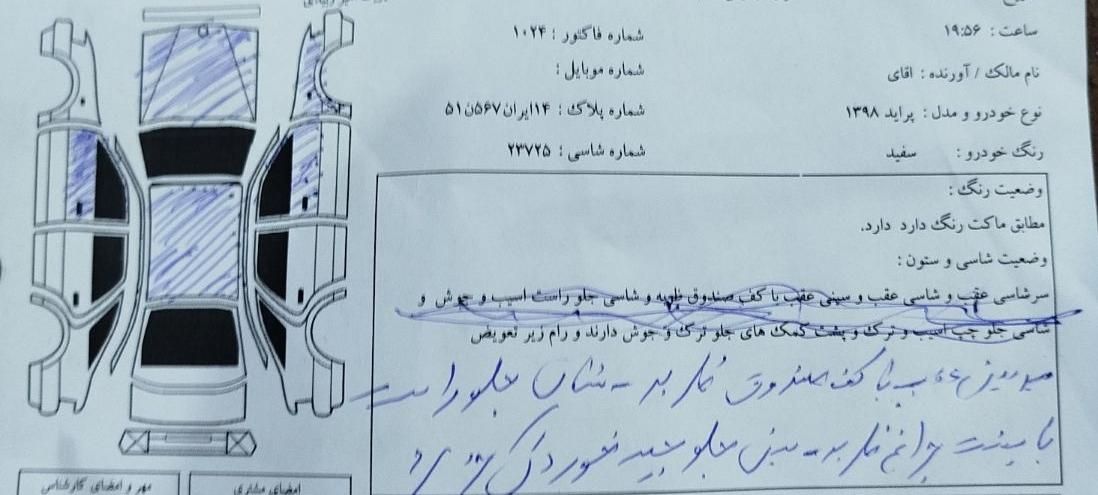 ساعت : ۱۹:۵۶
شماره فاکتور : ۱۰۲۴
نام مالک / آورنده : اقای
شماره موبایل :
نوع خودرو و مدل : پراید ۱۳۹۸
شماره پلاک : ۱۴ایران۵۶۷ن۵۱
رنگ خودرو : سفید
شماره شاسی : ۲۳۷۲۵
وضعیت رنگ :
مطابق ماکت رنگ دارد دارد.
وضعیت شاسی و ستون :
سرشاسی عقب و شاسی عقب و سینی عقب با کف صندوق ظربه و شاسی جلو راست اسیب و جوش و
شاسی جلو چپ اسیب و ترک و پشت کمک های جلو ترک و جوش دارند و رام زیر تعویض
عقب با کف صندوق جلو راست
با جلو
امضای مشتری
مهر و امضای کارشناس